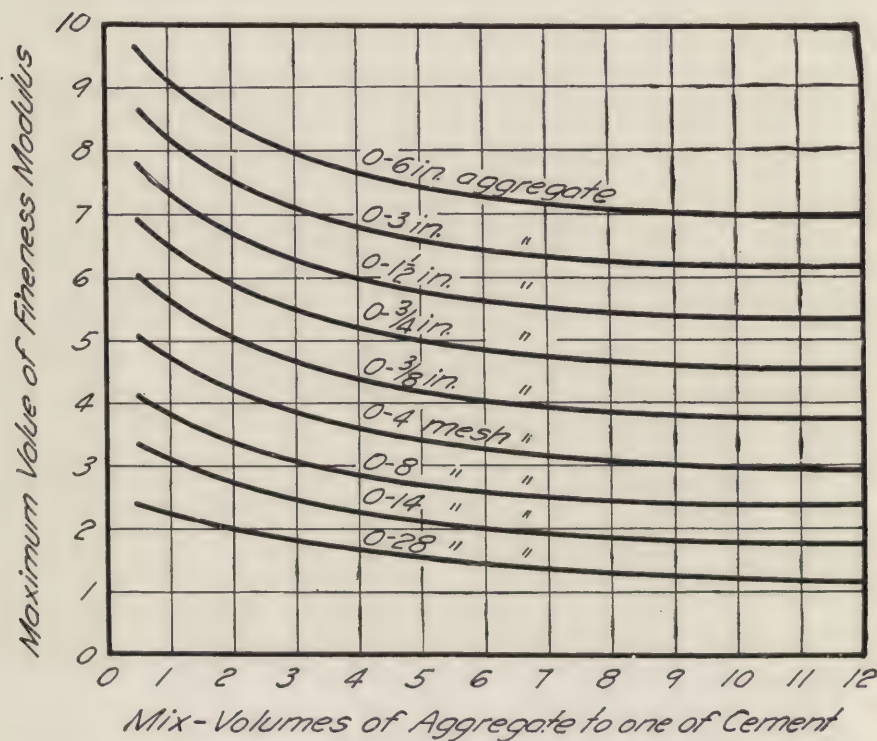 Maximum Value of Fineness Modulus
10
9
8
7
6
5
4
3
2
1
0
0-6 in. aggregate
0-3 in. "
0-1½ in. "
0-¾ in. "
0-⅜ in. "
0-4 mesh "
0-8 " "
0-14 " "
0-28 " "
0 1 2 3 4 5 6 7 8 9 10 11 12
Mix-Volumes of Aggregate to one of Cement